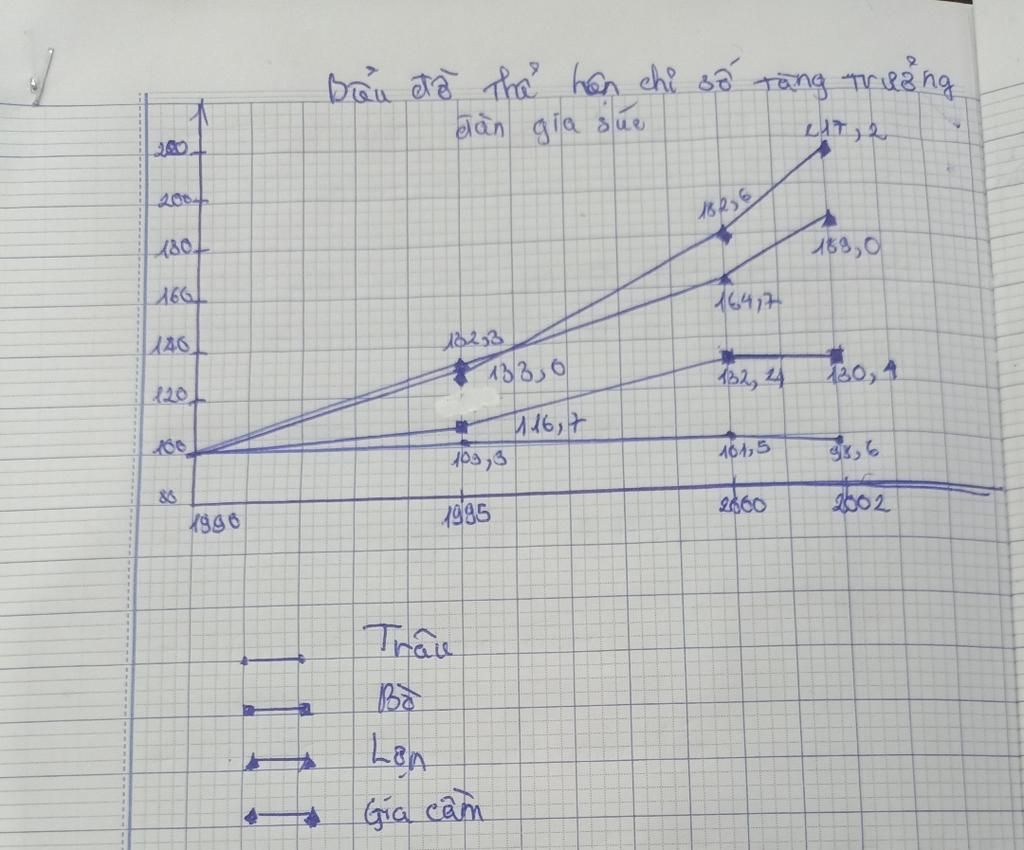 Biểu đồ thể hện chỉ số tăng trưởng
đàn gia súc
217,2
200
182,6
180
189,0
160
164,7
140
132,3
133,0
132,4
130,4
120
116,7
100
103,3
101,5
98,6
80
1990
1995
2000
2002
Trâu
Bò
Lợn
Gia cầm